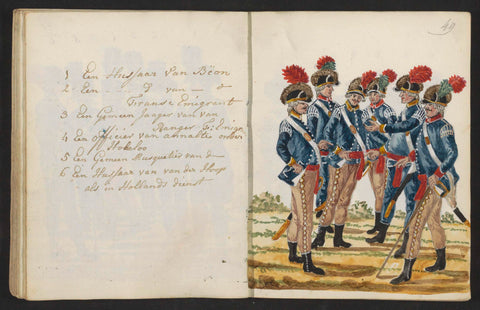 49
1 Een Hussaar van Bëon
2 Een - D° van - d°
Franse Emigrant
3 Een Gemeen Jaager van van
Ranger Fr: Emigr.
4 een officier van
5 Een Gemeen Musquetier van d°
6 Een Hussaar van van der Hoop
als in Hollands dienst